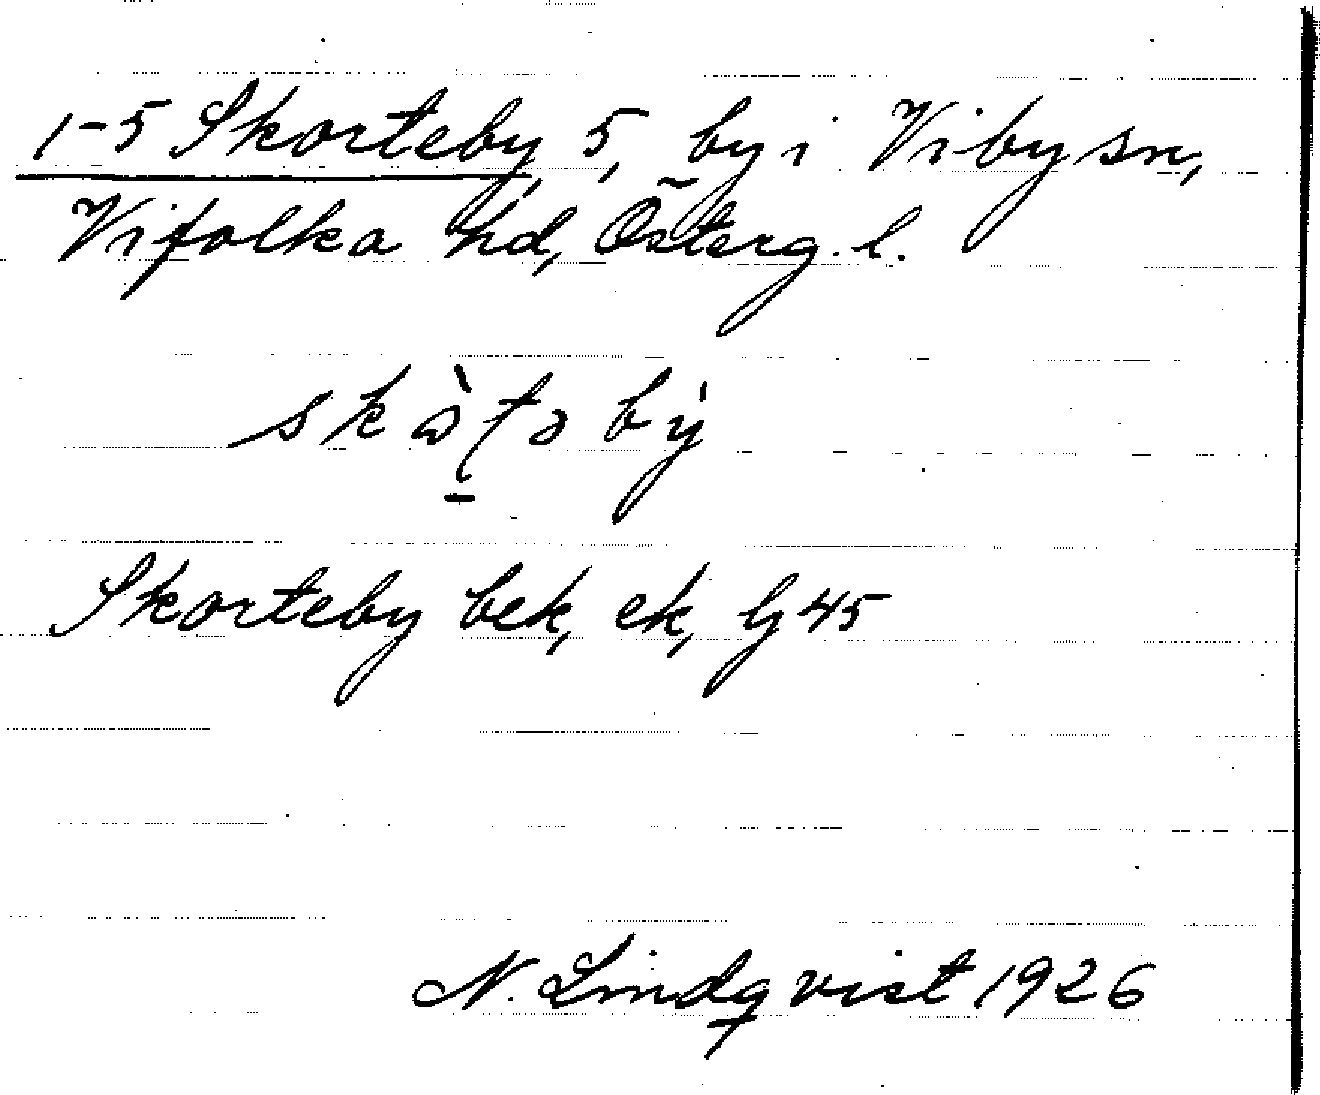 1-5 Skorteby, 5, by i Viby sn,
Vifolka hd, Österg. l.
Skorteby bek, ek, lj 45
N. Lindqvist 1926